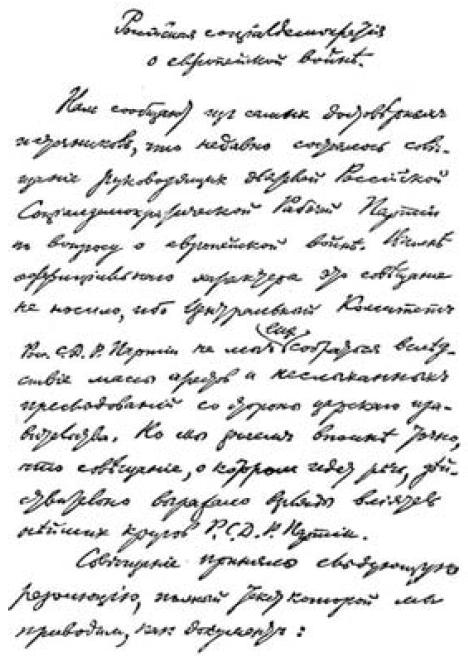 Россійская соціалдемократія
о европейской войнѣ.
Нам сообщают из самых достовѣрных
источников, что недавно состоялось совѣ-
щаніе руководящих дѣятелей Россійской
Соціалдемократической Рабочей Партіи
по вопросу о европейской войнѣ. Вполнѣ
оффиціальнаго характера это совѣщаніе
не носило, ибо Центральный Комитетъ
Рос. С.Д.Р. Партіи не мог еще собраться вслѣд-
ствіе массы арестов и неслыханных
преслѣдованій со стороны царскаго пра-
вительства. Но мы знаем вполнѣ точно,
что совѣщаніе, о котором идет рѣчь, дѣй-
ствительно выражало взгляды вліятель-
нѣйших кругов Р.С.Д.Р. Партіи.
Совѣщаніе приняло слѣдующую
резолюцію, полный текст которой мы
приводим, как документъ: